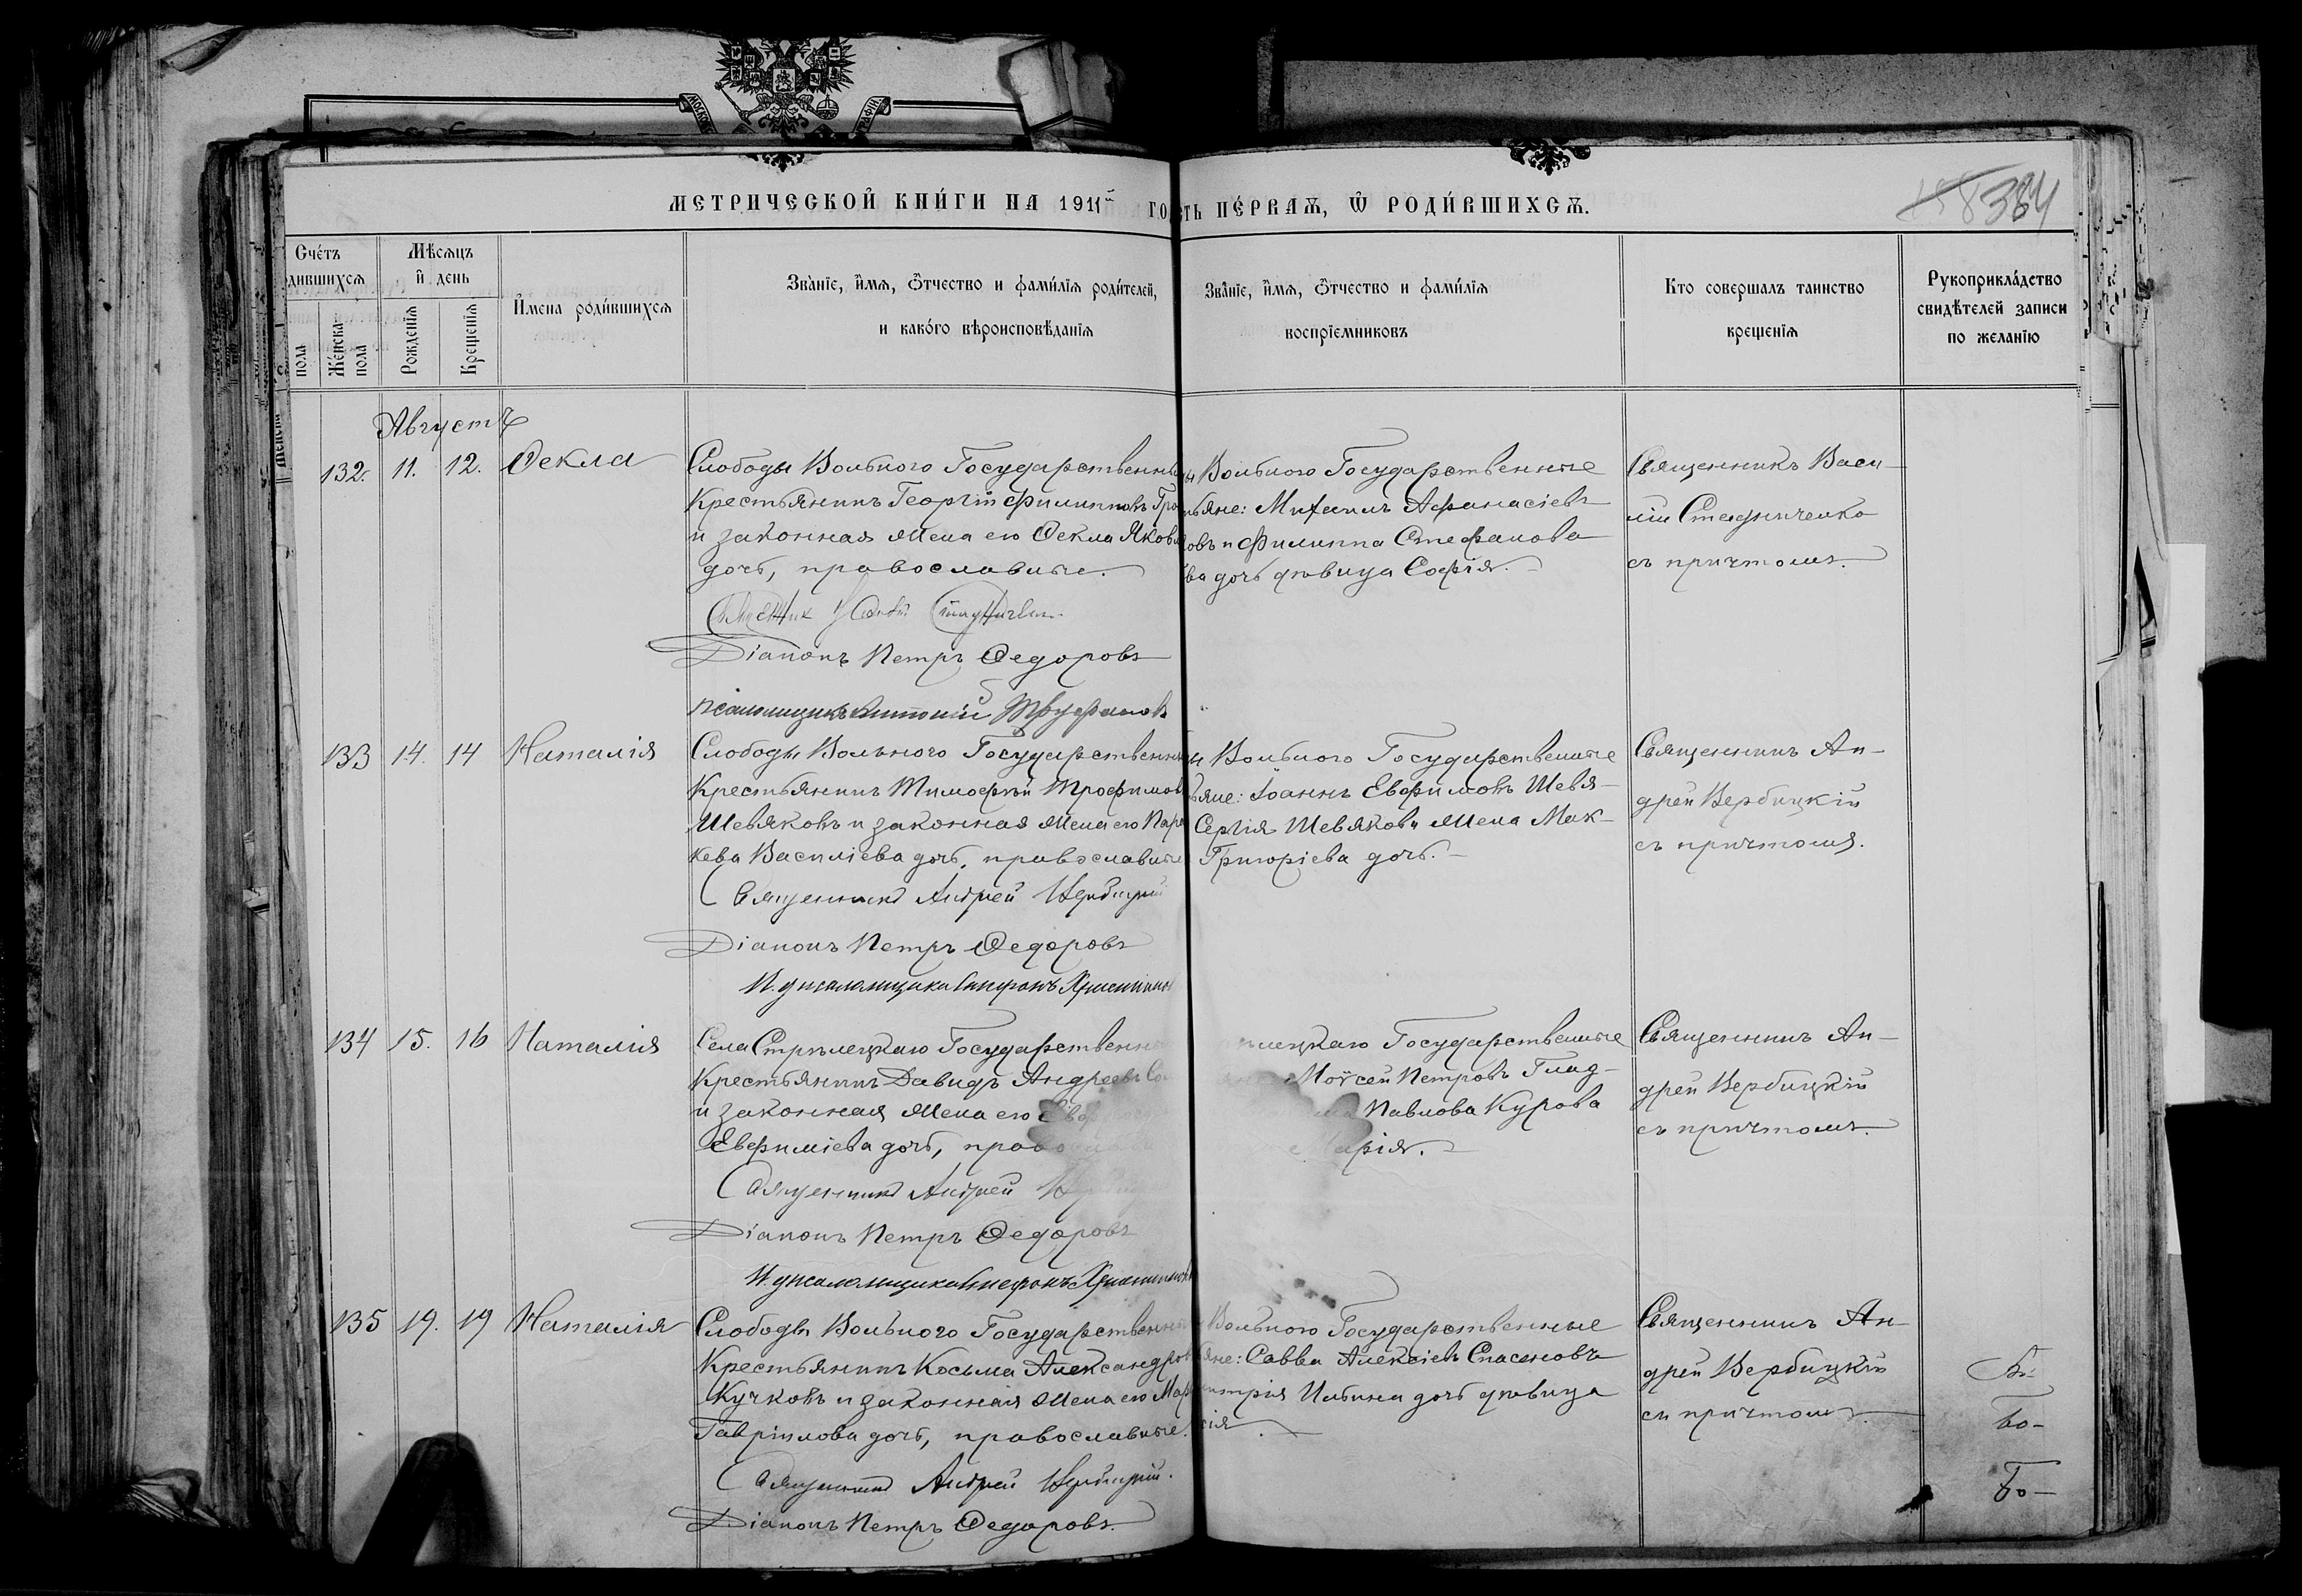 МЕТРИЧЕСКОЙ КНИ́ГИ НА 1911й ГО
СТЬ ПЕ́РВАѦ, Ѡ РОДИ́ВШИХСѦ.
384
Сче́тъ
дившихсѧ
пола
Же́нска
пола
Мѣсѧцъ
и день
Рожденїѧ
Крещенїѧ
И́мена роди́вшихсѧ
Зва́нїе, и́мѧ, ѻ́тчество и фами́лїѧ роди́телей,
и како́го вѣроисповѣданїѧ
Зва́нїе, и́мѧ, ѻ́тчество и фами́лїѧ
воспрїемниковъ
Кто совершалъ таинство
крещенїѧ
Рукоприкла́дство
свидѣтелей записи
по желанїю
Августъ
132. 11. 12. Ѳекла
Слободы Вольного Государственны
Крестьянинъ Георгій Филипповъ Гро
и законная жена его Ѳекла Яковл
дочь, православные.
Діаконъ Петръ Ѳедоровъ
псаломщикъ Антоній Труфановъ
ы Вольного Государственные
тьяне: Михаилъ Афанасіевъ
овъ и Филиппа Стефанова
ва дочь дѣвица Софія.
Священникъ Васи-
лій Стадниченко
съ причтомъ.
133 14. 14 Наталія
Слободы Вольного Государственны
Крестьянинъ Тимофѣй Трофимов
Шевяковъ и законная жена его Пара
кева Василіева дочь, православные
Священникъ Андрей Вербицкій
Діаконъ Петръ Ѳедоровъ
И. д. псаломщика
ы Вольного Государственные
ьяне: Іоаннъ Евфимовъ Шевя-
Сергія Шевякова жена Мак-
Григоріева дочь.
Священникъ Ан-
дрей Вербицкій
съ причтомъ.
134 15. 16 Наталія
Села Стрѣлецкаго Государственны
Крестьянинъ Давидъ Андреевъ
и законная жена его
Евфиміева дочь,
Священникъ Андрей
Діаконъ Петръ Ѳедоровъ
И. д. псаломщика
лецкаго Государственные
Моѵсей Петровъ Глад-
Павлова Курова
арія.
Священникъ Ан-
дрей Вербицкій
съ причтомъ.
135 19. 19 Наталія
Слободы Вольного Государственны
Крестьянинъ Косьма Александров
Кучковъ и законная жена его Мар
Гавріилова дочь, православные.
Священникъ Андрей Вербицкій.
Діаконъ Петръ Ѳедоровъ.
Вольного Государственные
яне: Савва Алексіевъ Спасеновъ
митрія Ильина дочь дѣвица
сія.
Священникъ Ан-
дрей Вербицкій
съ причтомъ.